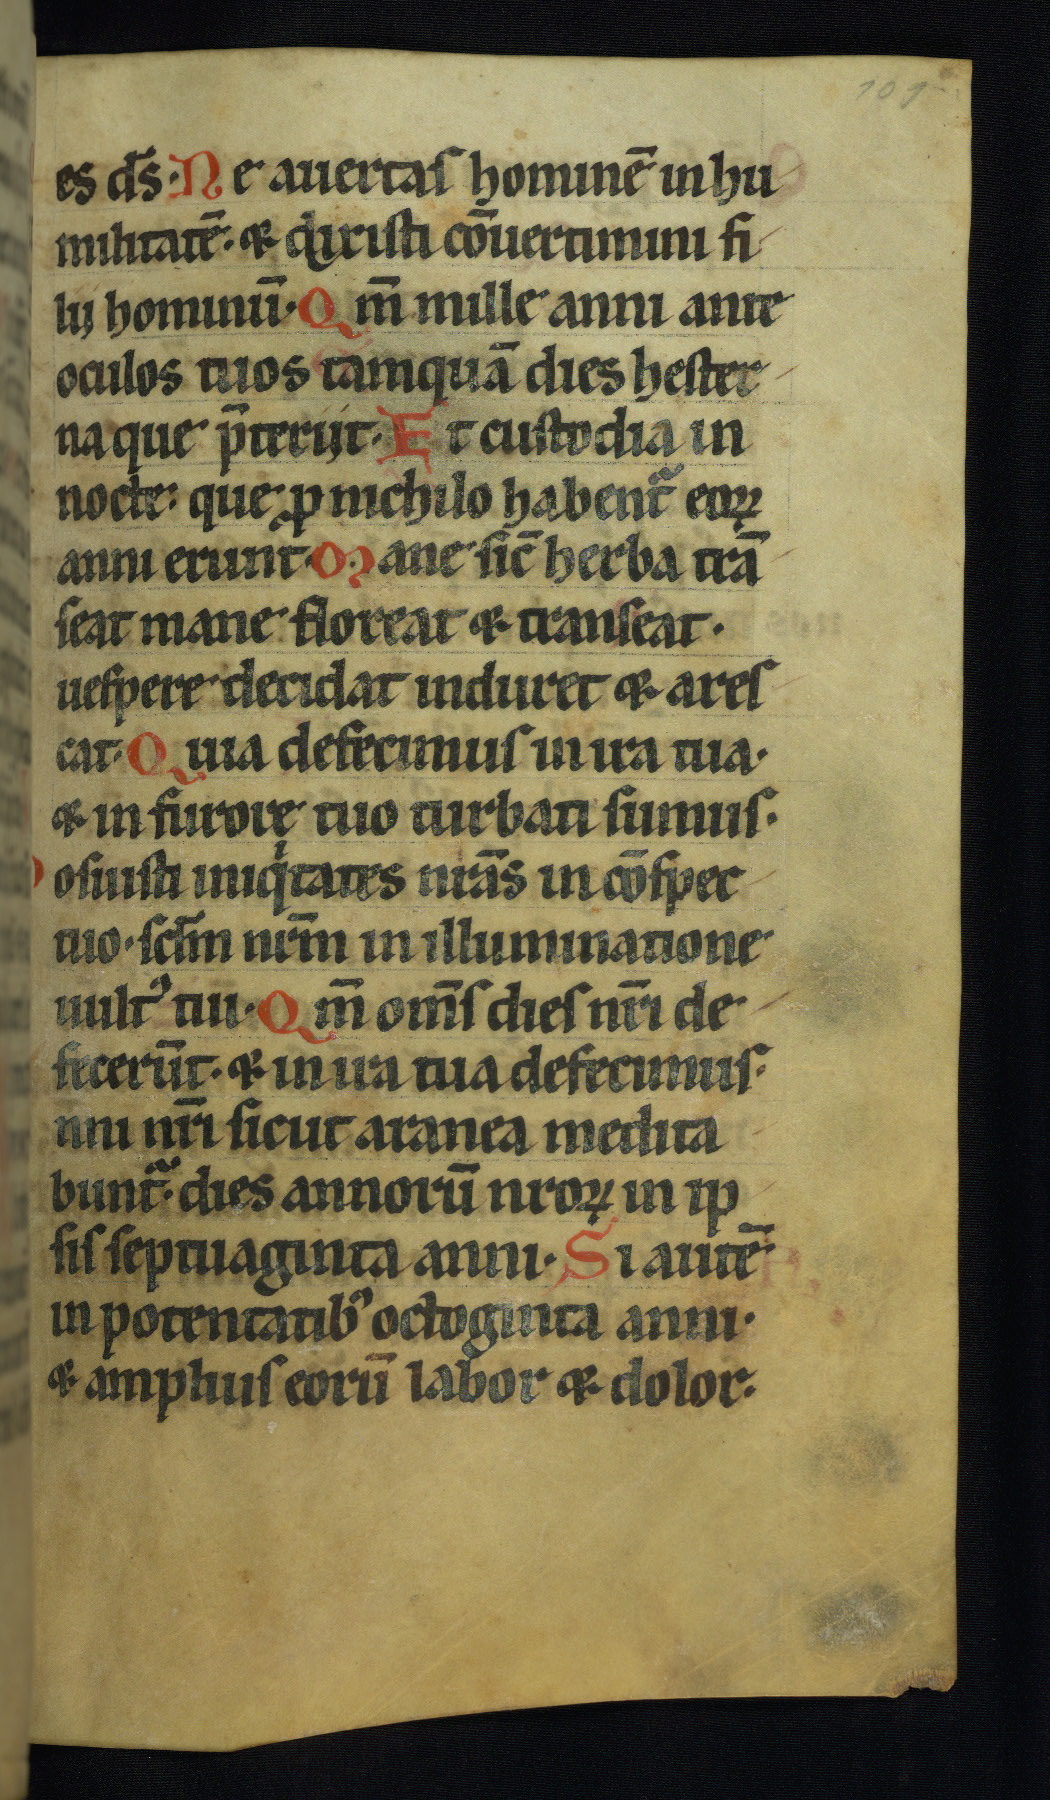 109
es ds̄· Ne auertas hominē in hu
militatē· ⁊ dixisti cōuertimini fi
lij hominū· Qm̄ mille anni ante
oculos tuos tamquā dies hester
na que p̄terijt· Et custodia in
nocte· que ꝓ nichilo habent᷑ eoꝝ
anni erunt· Mane sic̄ herba trā
seat mane floreat ⁊ transeat·
uespere decidat induret ⁊ ares
cat· Quia defecimus in ira tua·
⁊ in furore tuo turbati sumus·
Posuisti iniqⁱtates nrās in cōspec
tuo· sclm̄ nrm̄ in illuminatione
uultꝰ tui· Qm̄ oms̄ dies nr̄i de
fecerūt· ⁊ in ira tua defecimus·
nni nr̄i sicut aranea medita
bunt᷑· dies annorū nroꝝ in ip
sis septuaginta anni· Si autē
in potentatibꝰ octoginta anni·
⁊ amplius eorū labor ⁊ dolor·